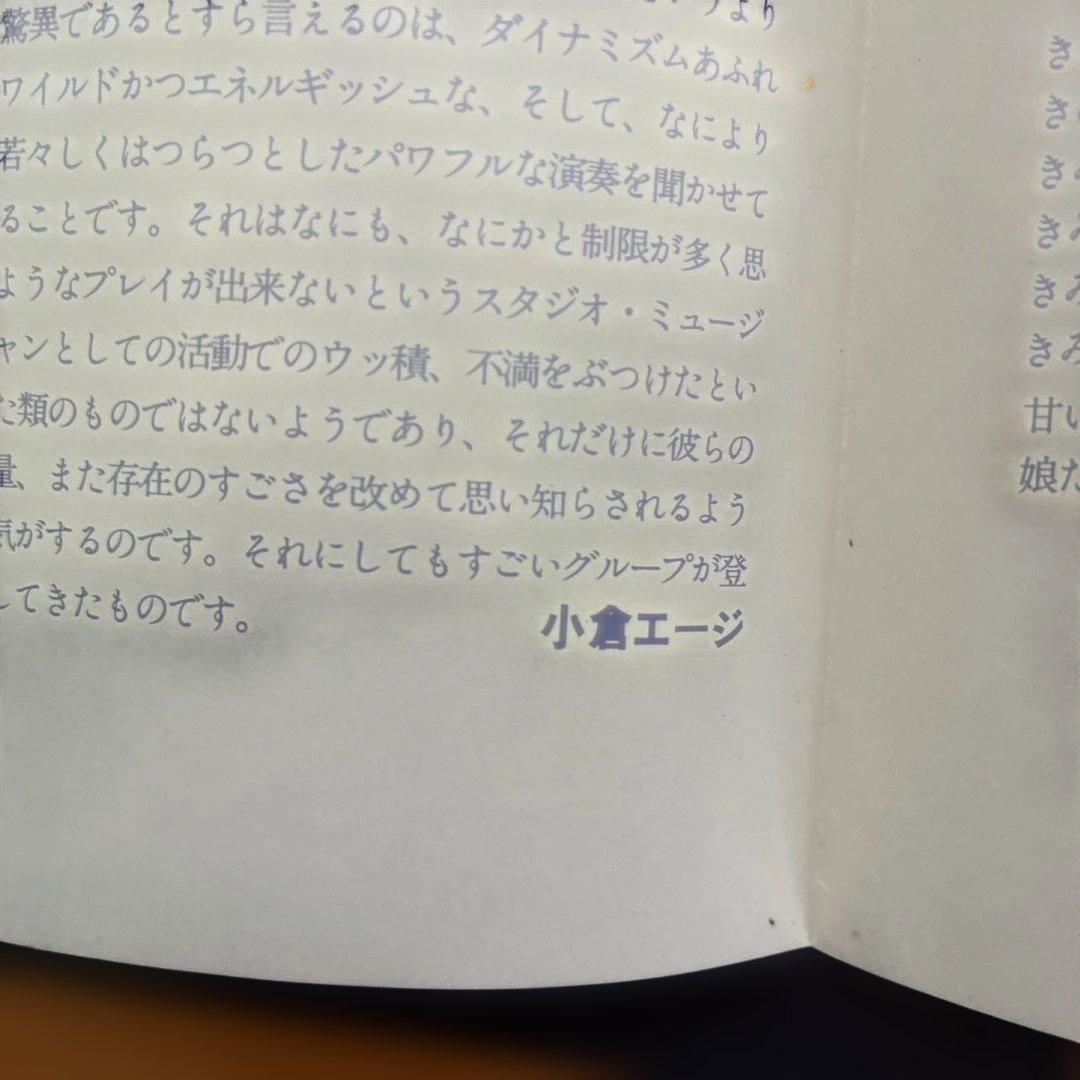 驚異であるとすら言えるのは、ダイナミズムあふれ
ワイルドかつエネルギッシュな、そして、なにより
若々しくはつらつとしたパワフルな演奏を聞かせて
ることです。それはなにも、なにかと制限が多く思
ようなプレイが出来ないというスタジオ・ミュージ
ャンとしての活動でのウッ積、不満をぶつけたとい
た類のものではないようであり、それだけに彼らの
量、また存在のすごさを改めて思い知らされるよう
気がするのです。それにしてもすごいグループが登
してきたものです。
小倉エージ
き
き
き
きみ
きみ
きみ
甘い
娘だ